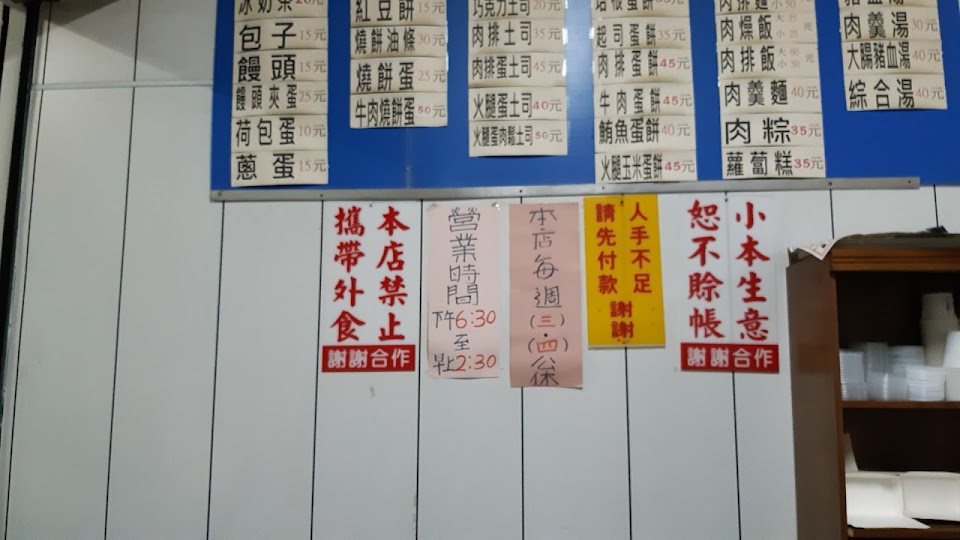 冰奶茶20元
包子15元
饅頭15元
饅頭夾蛋25元
荷包蛋10元
蔥蛋15元
紅豆餅15元
燒餅油條30元
燒餅蛋25元
牛肉燒餅蛋50元
巧克力土司20元
肉排土司35元
肉排蛋土司45元
火腿蛋土司40元
火腿蛋肉鬆土司50元
培根蛋餅
起司蛋餅35元
肉排蛋餅45元
牛肉蛋餅45元
鮪魚蛋餅40元
火腿玉米蛋餅45元
肉排麵
肉燥飯
肉排飯
肉羹麵40元
肉粽35元
蘿蔔糕35元
豬血湯
肉羹湯30元
大腸豬血湯40元
綜合湯40元
本店禁止
攜帶外食
謝謝合作
營業時間
下午6:30
至
早上2:30
本店每週(三)、(四)公休
人手不足
請先付款
謝謝
小本生意
恕不賒帳
謝謝合作